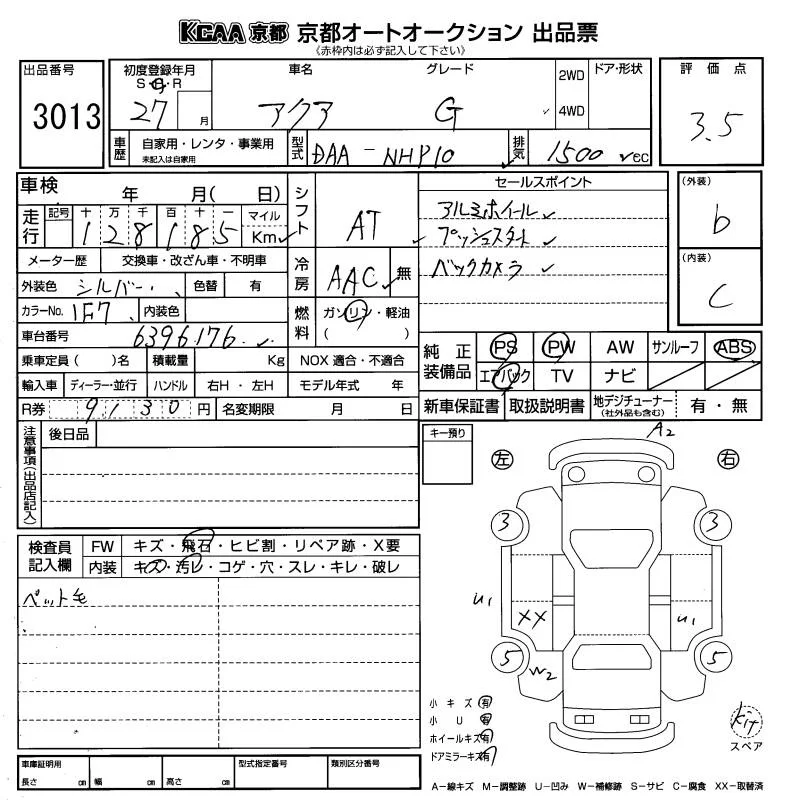 KCAA 京都 京都オートオークション 出品票
《赤枠内は必ず記入して下さい》
出品番号
3013
初度登録年月
S・H・R
27 月
車名
アクア
グレード
G
2WD
4WD
ドア・形状
評価点
3.5
車歴
自家用・レンタ・事業用
未記入は自家用
型式
DAA-NHP10
排気
1500 cc
車検 年 月( 日)
走行
記号 十 万 千 百 十 一
1 2 8 1 8 5
マイル
Km
シフト
AT
メーター歴 交換車・改ざん車・不明車
外装色 シルバー 色替 有
カラーNo. 1F7 内装色
車台番号 6396176
乗車定員( )名 積載量 Kg
輸入車 ディーラー・並行 ハンドル 右H・左H
R券 9130 円 名変期限 月 日
冷房 AAC 無
燃料
ガソリン・軽油
( )
NOX 適合・不適合
モデル年式 年
セールスポイント
アルミホイール
プッシュスタート
バックカメラ
(外装)
b
(内装)
C
純正装備品
PS PW AW サンルーフ ABS
エアバック TV ナビ
新車保証書 取扱説明書 地デジチューナー
(社外品も含む)
有・無
注意事項(出品店記入)
後日品
キー預り
検査員記入欄
FW キズ・飛石・ヒビ割・リペア跡・X要
内装 キズ・汚レ・コゲ・穴・スレ・キレ・破レ
ペット毛
左 右
A2
3 3
U1 XX U1
5 5
W2
小キズ 有
小U 有
ホイールキズ 有
ドアミラーキズ 有
kit
スペア
車庫証明用
長さ cm 幅 cm 高さ cm
型式指定番号
類別区分番号
A-線キズ M-調整跡 U-凹み W-補修跡 S-サビ C-腐食 XX-取替済